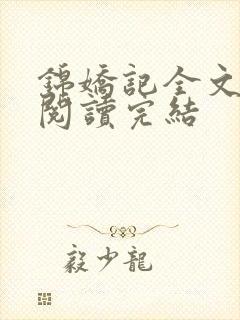 錦嬌記全文
閱讀完結
毅少龍